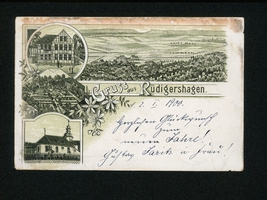 Gruss aus Rüdigershagen.
2. I. 1900.
Herzlichen Glückwunsch
zum
neuen Jahre!
Gustav u Frau!